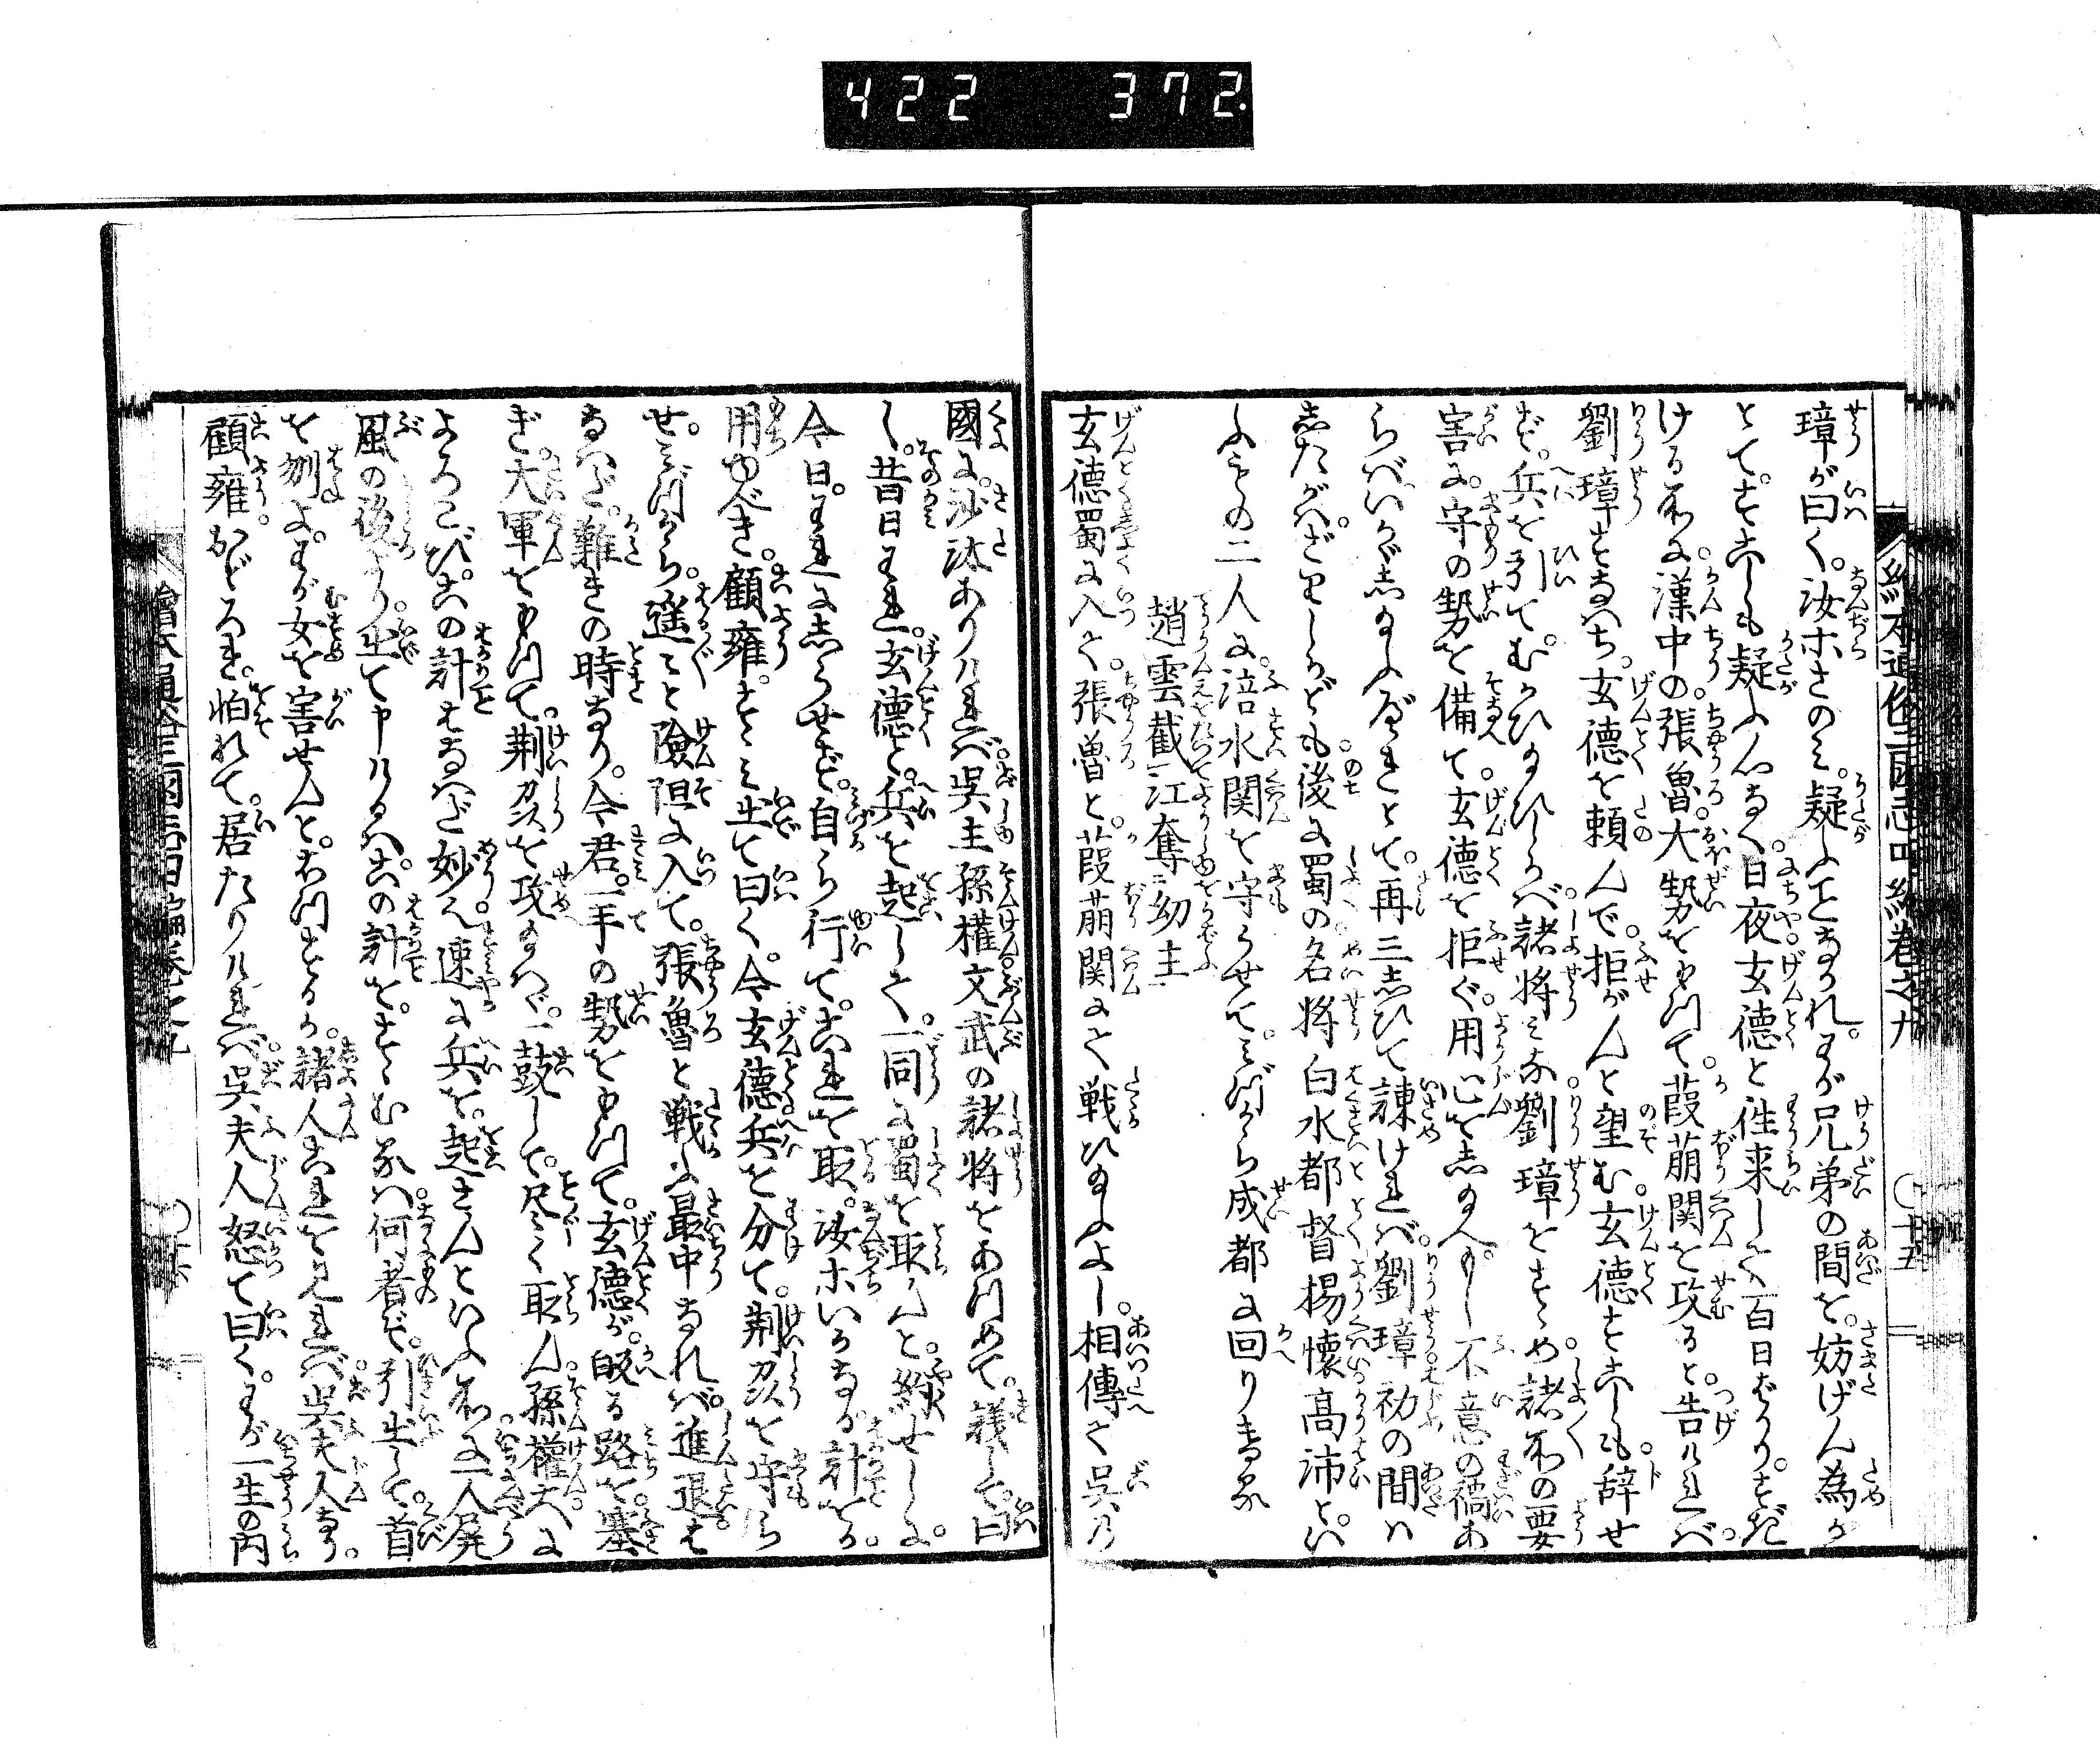 422 372.
璋が曰く。汝ホさのミ疑ふことなかれ。わが兄弟の間を。妨げん為か
とて。すこしも疑ふ心なく。日夜玄徳と往来して百日ばかり。すぎ
ける所に。漢中の張魯。大勢をもつて。葭萌関を攻ると。告けれバ。
劉璋すなハち。玄徳を頼んで。拒がんと望む。玄徳すこしも。辞せ
ず。兵を引て。むかひ給ひしかバ。諸将ミな劉璋をすゝめ。諸所の要
害に。守の勢を備て。玄徳を拒ぐ。用心をし給へ。もし不意の禍あ
らバ。いかゞし給ふべきとて。再三志ひて諌けれバ。劉璋初の間ハ
志たがハざりしかども。後に蜀の名将白水都督楊懐高沛とい
ふもの二人に。涪水関を守らせて。ミづから成都に回りける
趙雲截江奪幼主
玄徳蜀に入て。張魯と。葭萌関にて戦ひ給ふよし。相傳て呉の
國に。沙汰ありけれバ。呉主孫權文武の諸将をあつめて。議して曰
し。昔日われ。玄徳と。兵を起して。一同に蜀を取んと。約せしに。
今日。われに志らせず。自ら行て。これを取。汝ホいかなる計をか。
用ゆべき。顧雍。すゝミ出て曰く。今玄徳兵を分て。荊州を守ら
せ。ミづから。遥々と險阻に入て。張魯と戦ふ最中なれバ。進退は
なハだ。難きの時なり。今君。一手の勢をもつて。玄徳が。皈る路を塞
ぎ。大軍をもつて。荊州を攻給ハゞ。一鼓して。尽く取ん。孫權大に
よろこび。この計はなハだ妙也。速に兵を。起さんといふ所に。一人屏
風の後より。出て申けるハ。この計を。すゝむるハ。何者ぞ。引出して。首
を刎よ。わが女を害せんと。おつするか。諸人これを見れバ。呉夫人なり。
顧雍おどろき。怕れて。居たりけれバ。呉夫人怒て曰く。わが一生の内